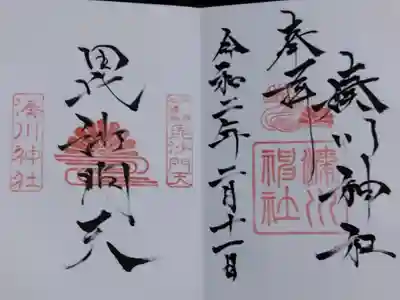 湊川神社
奉拝
湊川
神社
令和二年二月十一日
毘沙門天
毘沙門天
湊川神社